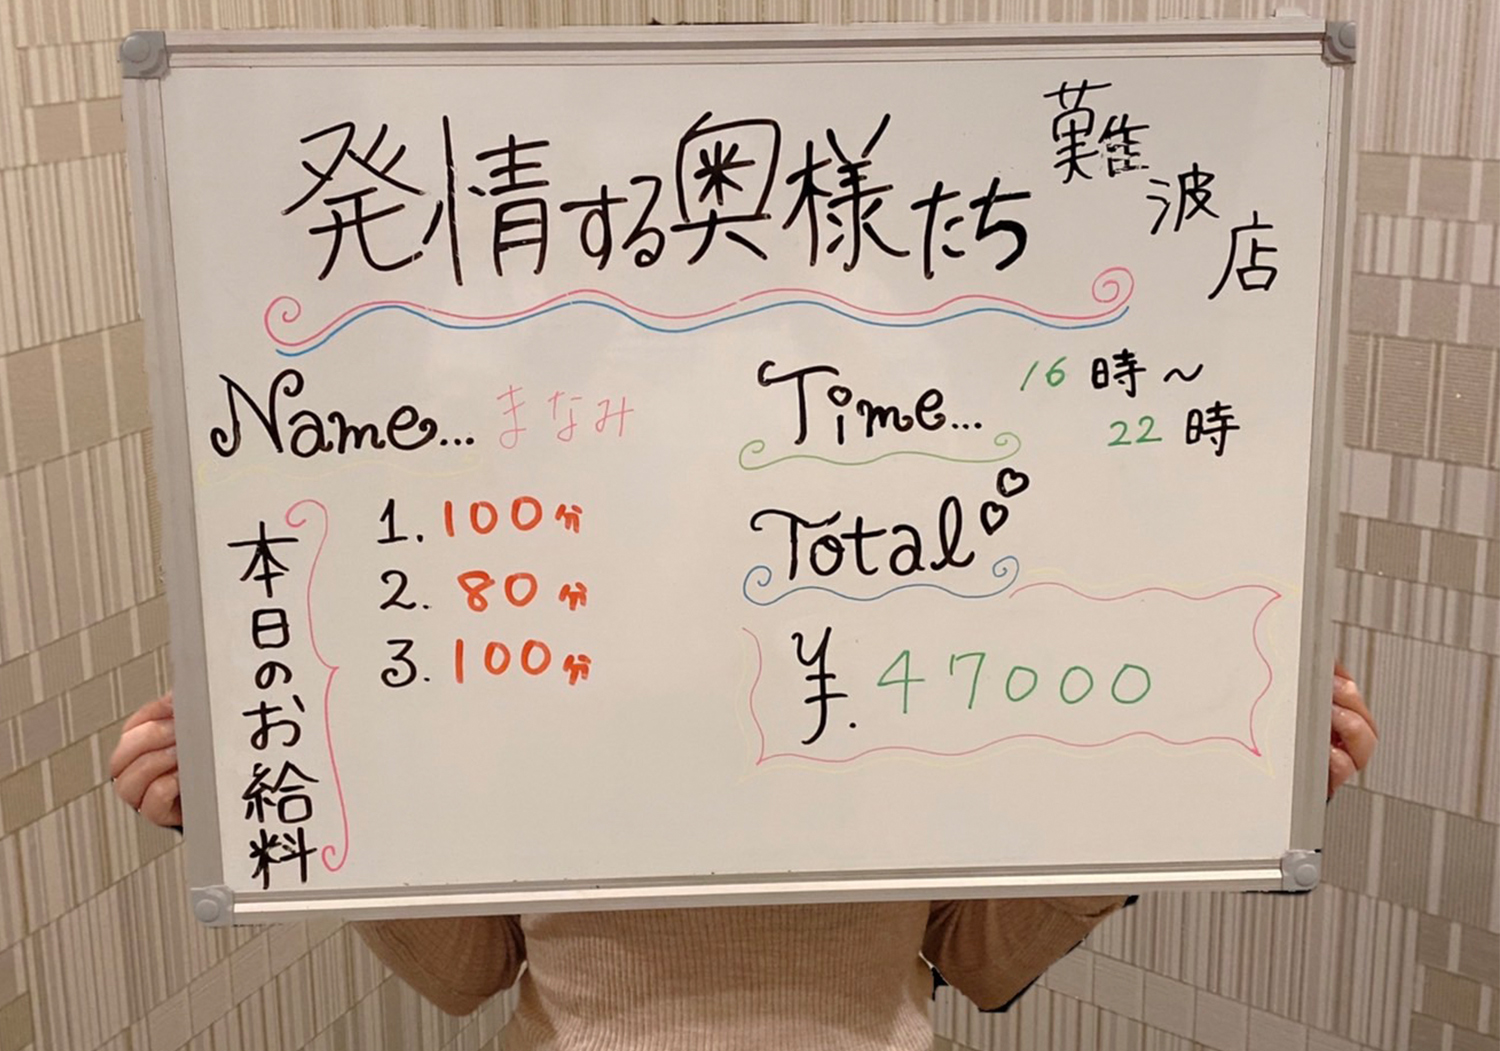 発情する奥様たち 難波店
Name... まなみ
Time... 16時～
22時
本日のお給料
1. 100分
2. 80分
3. 100分
Total
¥. 47000